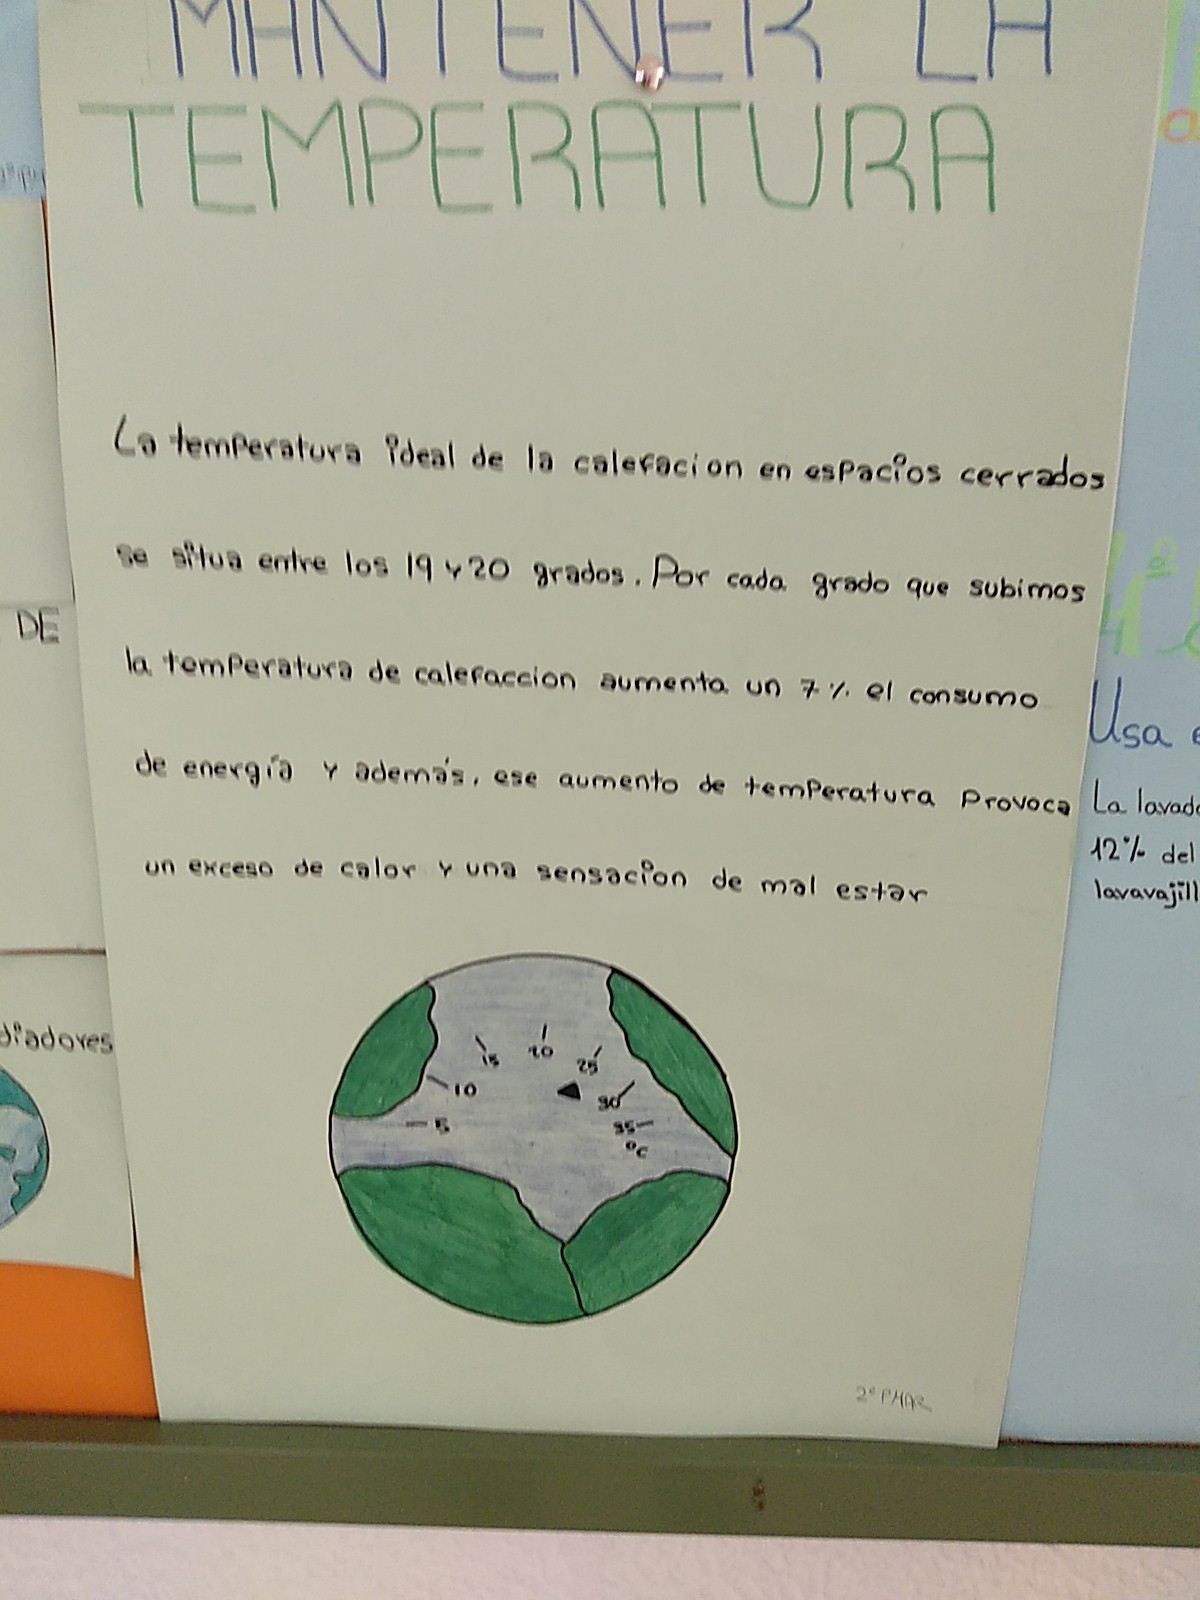 MANTENER LA
TEMPERATURA
La temperatura ideal de la calefacion en espacios cerrados
se situa entre los 19 y 20 grados. Por cada grado que subimos
la temperatura de calefaccion aumenta un 7% el consumo
de energía y además, ese aumento de temperatura provoca
un exceso de calor y una sensacion de mal estar
5
10
15
20
25
30
35
°C
2º PMAR
DE
diadores
Usa
La lavado
12% del
lavavajill